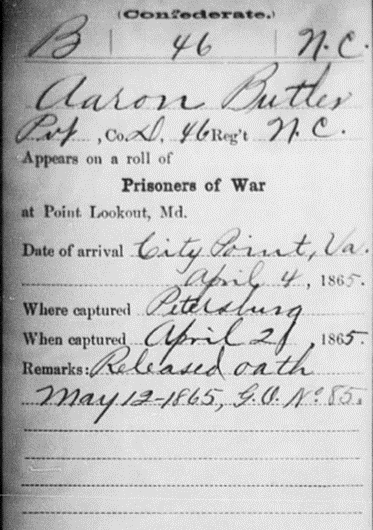 (Confederate.)
B | 46 | N.C.
Aaron Butler
Pvt, Co. D, 46 Reg't N.C.
Appears on a roll of
Prisoners of War
at Point Lookout, Md.
Date of arrival City Point, Va.
April 4, 1865.
Where captured Petersburg
When captured April 2, 1865.
Remarks: Released oath
May 12-1865, G.O. No. 85.